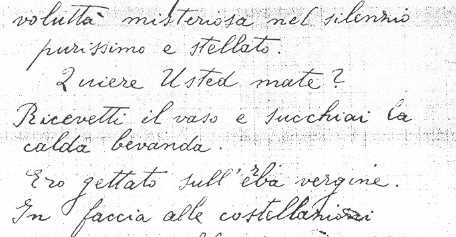 voluttà misteriosa nel silenzio
purissimo e stellato.
Quiere Usted mate?
Ricevetti il vaso e succhiai la
calda bevanda.
Ero gettato sull'erba vergine.
In faccia alle costellazioni